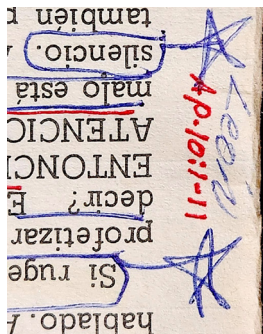 hablado. A
Si ruge
profetizar
decir? E
ENTONC
ATENCIÓ
malo está
silencio.
también p
León
Ap.10:1-11